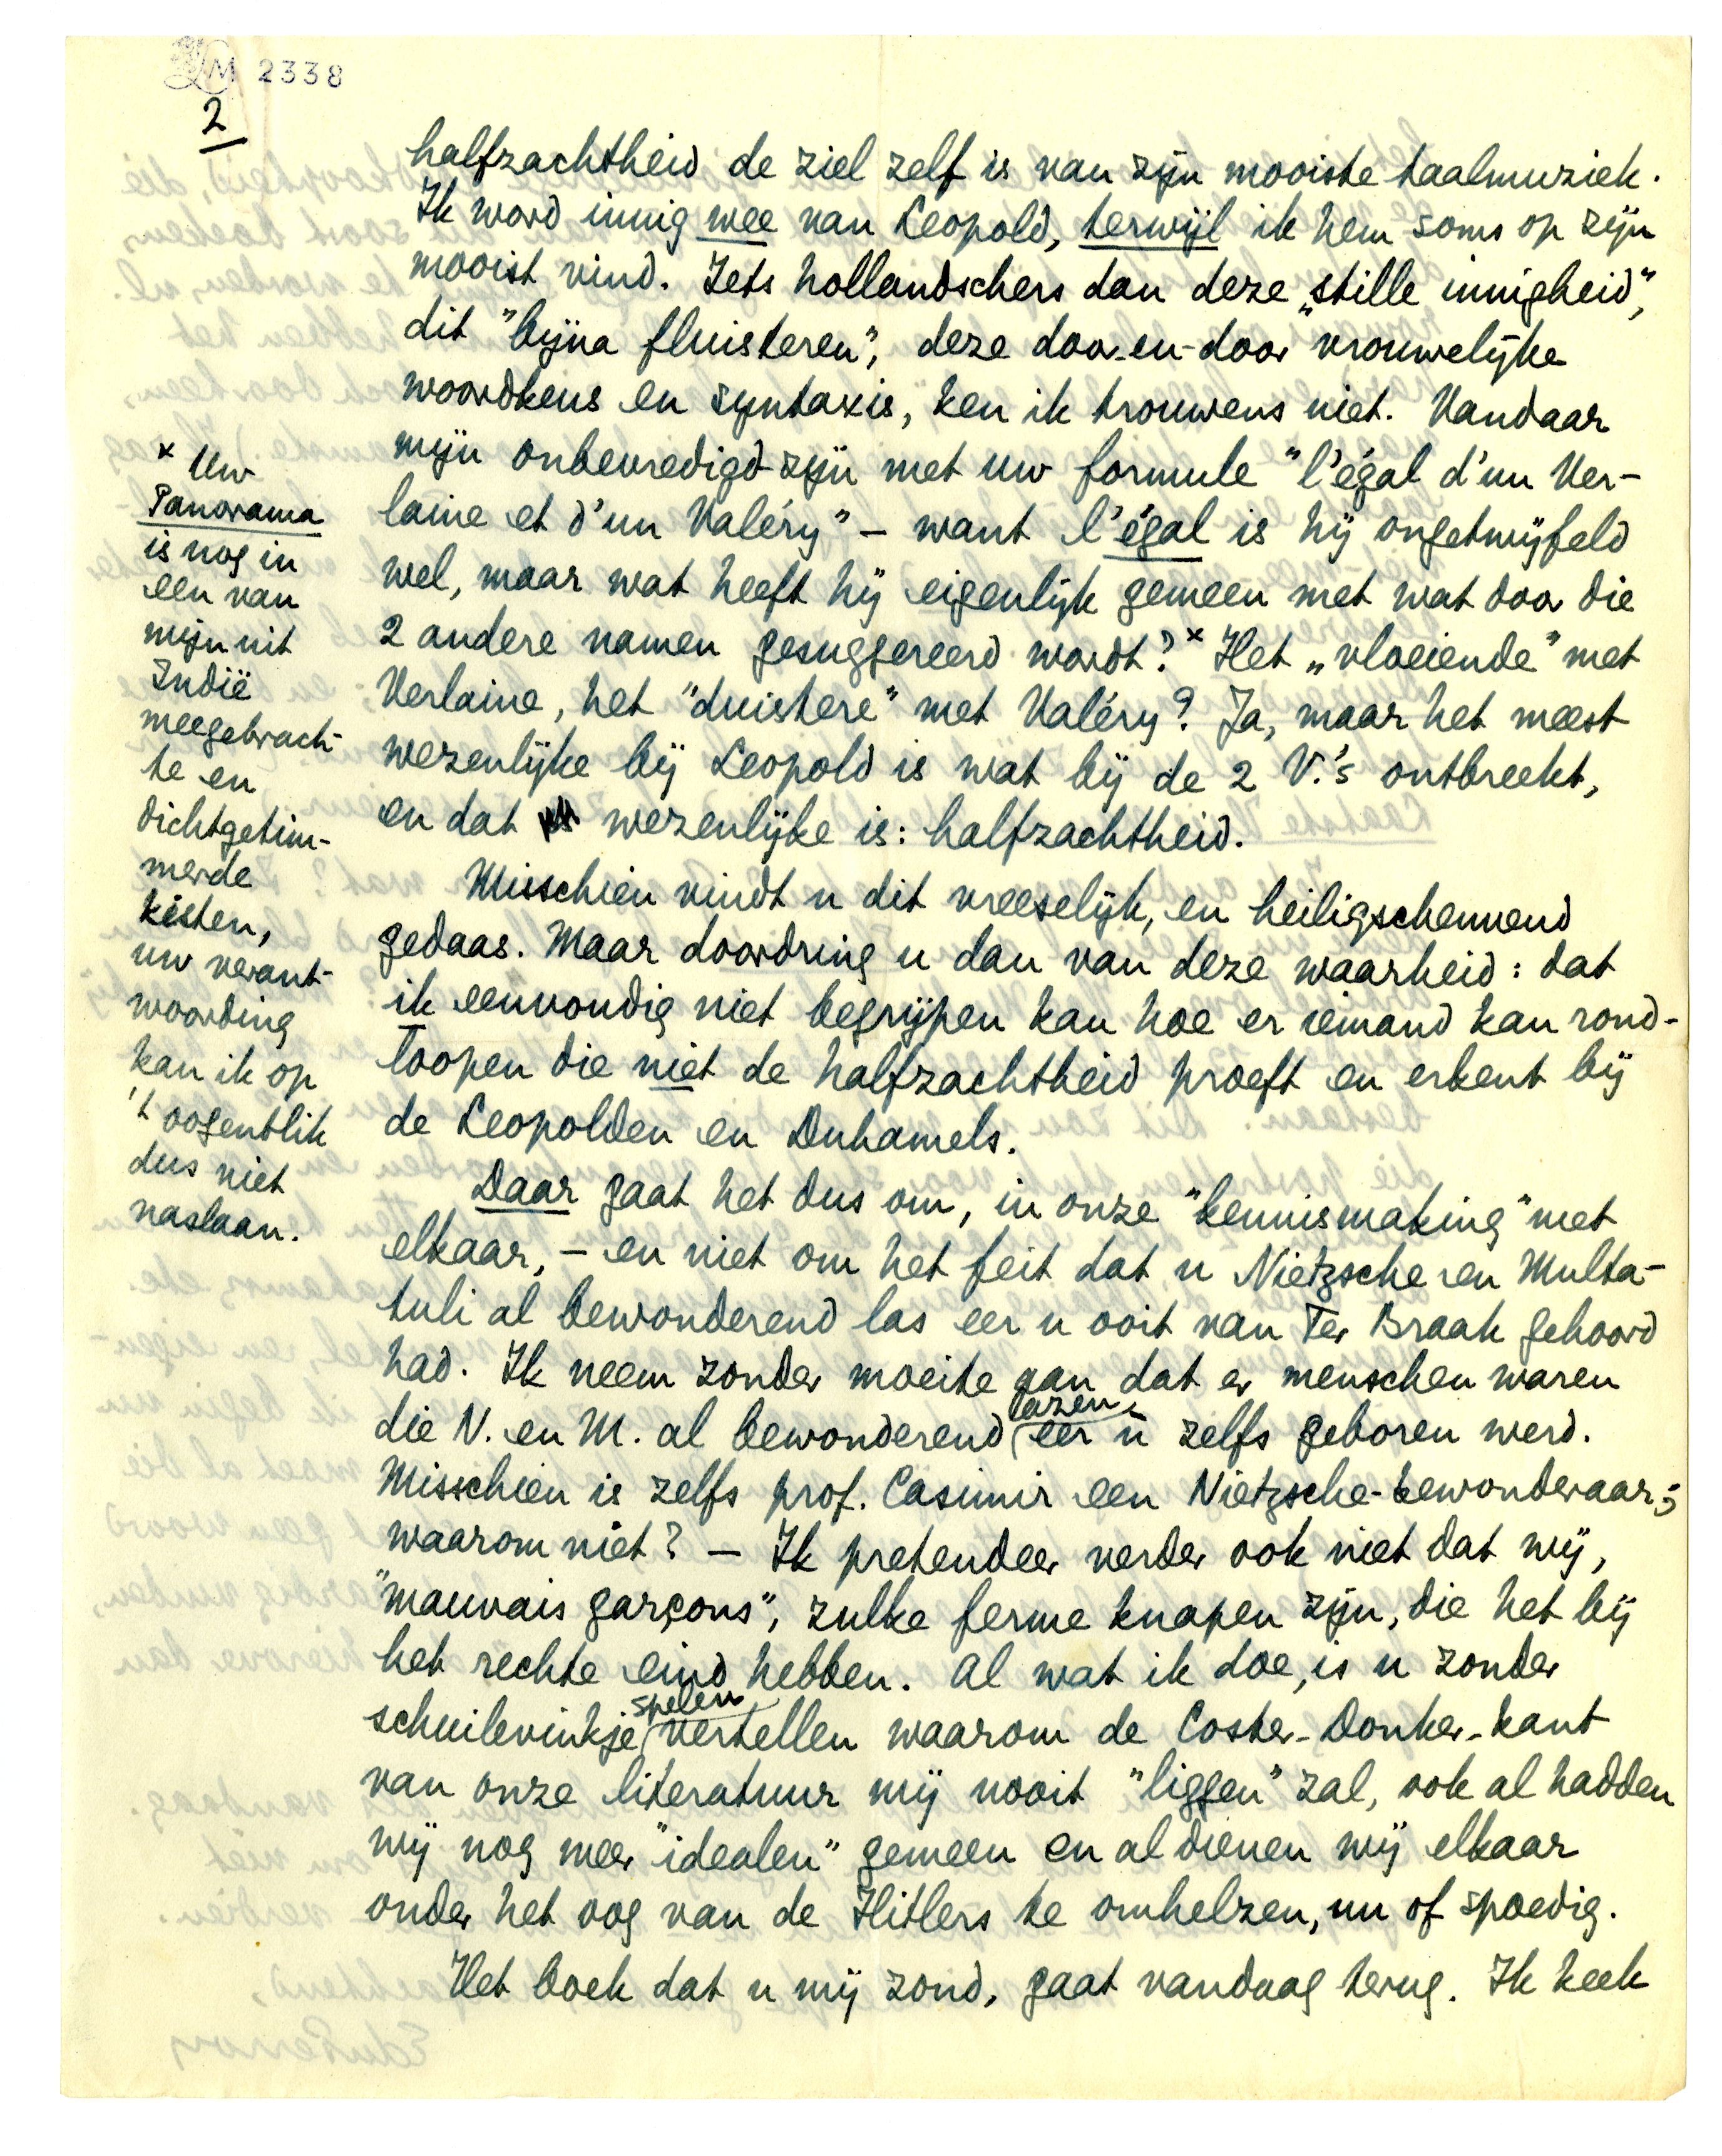 LM 2338
2
halfzachtheid de ziel zelf is van zijn mooiste taalmuziek.
Ik word innig wee van Leopold, terwijl ik hem soms op zijn
mooist vind. Iets hollandschers dan deze „stille innigheid",
dit "bijna fluisteren", deze door-en-door vrouwelijke
woordkeus en syntaxis, ken ik trouwens niet. Vandaar
mijn onbevredigd-zijn met uw formule "l'égal d'un Ver-
laine et d'un Valéry" – want l'égal is hij ongetwijfeld
wel, maar wat heeft hij eigenlijk gemeen met wat door die
2 andere namen gesuggereerd wordt?ˣ Het „vloeiende" met
Verlaine, het "duistere" met Valéry? Ja, maar het meest
wezenlijke bij Leopold is wat bij de 2 V.'s ontbreekt,
en dat wezenlijke is: halfzachtheid.
Misschien vindt u dit vreeselijk, en heiligschennend
gedaas. Maar doordring u dan van deze waarheid: dat
ik eenvoudig niet begrijpen kan hoe er iemand kan rond-
loopen die niet de halfzachtheid proeft en erkent bij
de Leopolden en Duhamels.
Daar gaat het dus om, in onze "kennismaking" met
elkaar, – en niet om het feit dat u Nietzsche en Multa-
tuli al bewonderend las eer u ooit van Ter Braak gehoord
had. Ik neem zonder moeite aan dat er menschen waren
die N. en M. al bewonderend lazen eer u zelfs geboren werd.
Misschien is zelfs prof. Casimir een Nietzsche-bewonderaar;
waarom niet? – Ik pretendeer verder ook niet dat wij,
"mauvais garçons", zulke ferme knapen zijn, die het bij
het rechte eind hebben. Al wat ik doe, is u zonder
schuilevinkje spelen vertellen waarom de Coster-Donker-kant
van onze literatuur mij nooit "liggen" zal, ook al hadden
wij nog meer "idealen" gemeen en al dienen wij elkaar
onder het oog van de Hitlers te omhelzen, nu of spoedig.
Het boek dat u mij zond, gaat vandaag terug. Ik keek
ˣ Uw
Panorama
is nog in
een van
mijn uit
Indië
meegebrach-
te en
dichtgetim-
merde
kisten,
uw verant-
woording
kan ik op
't oogenblik
dus niet
naslaan.